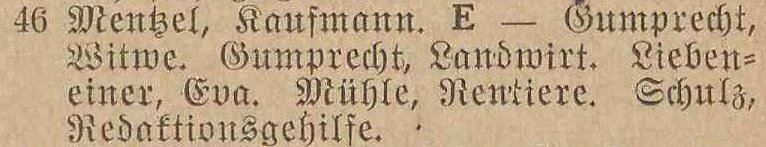 46 Mentzel, Kaufmann. E — Gumprecht,
Witwe. Gumprecht, Landwirt. Lieben=
einer, Eva. Mühle, Rentiere. Schulz,
Redaktionsgehilfe.